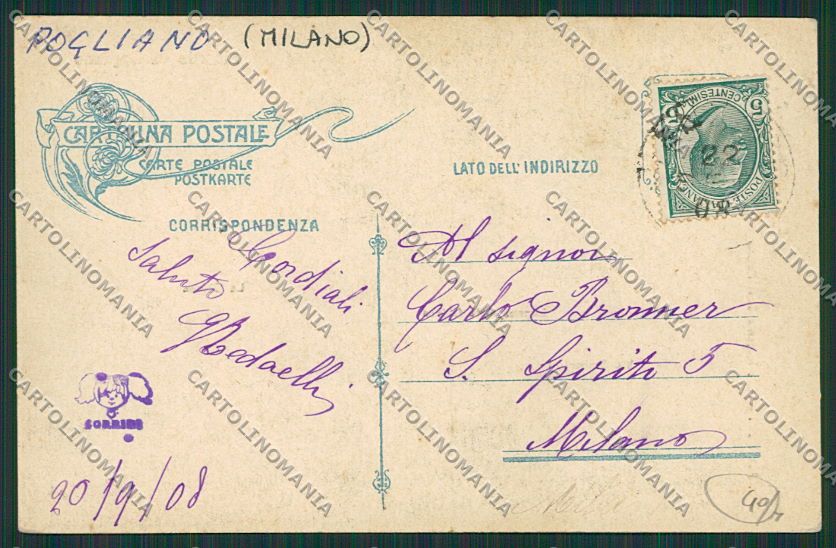 POGLIANO (MILANO)
CARTOLINA POSTALE
CARTE POSTALE
POSTKARTE
LATO DELL'INDIRIZZO
CORRISPONDENZA
CENTESIMI
5 5
POSTE ITALIANE
22
08
Cordiali
Saluti
GRedaelli
Al Signor
Carlo Bronner
S. Spirito 5
Milano
SORRIDE
20/9/08
CARTOLINOMANIA